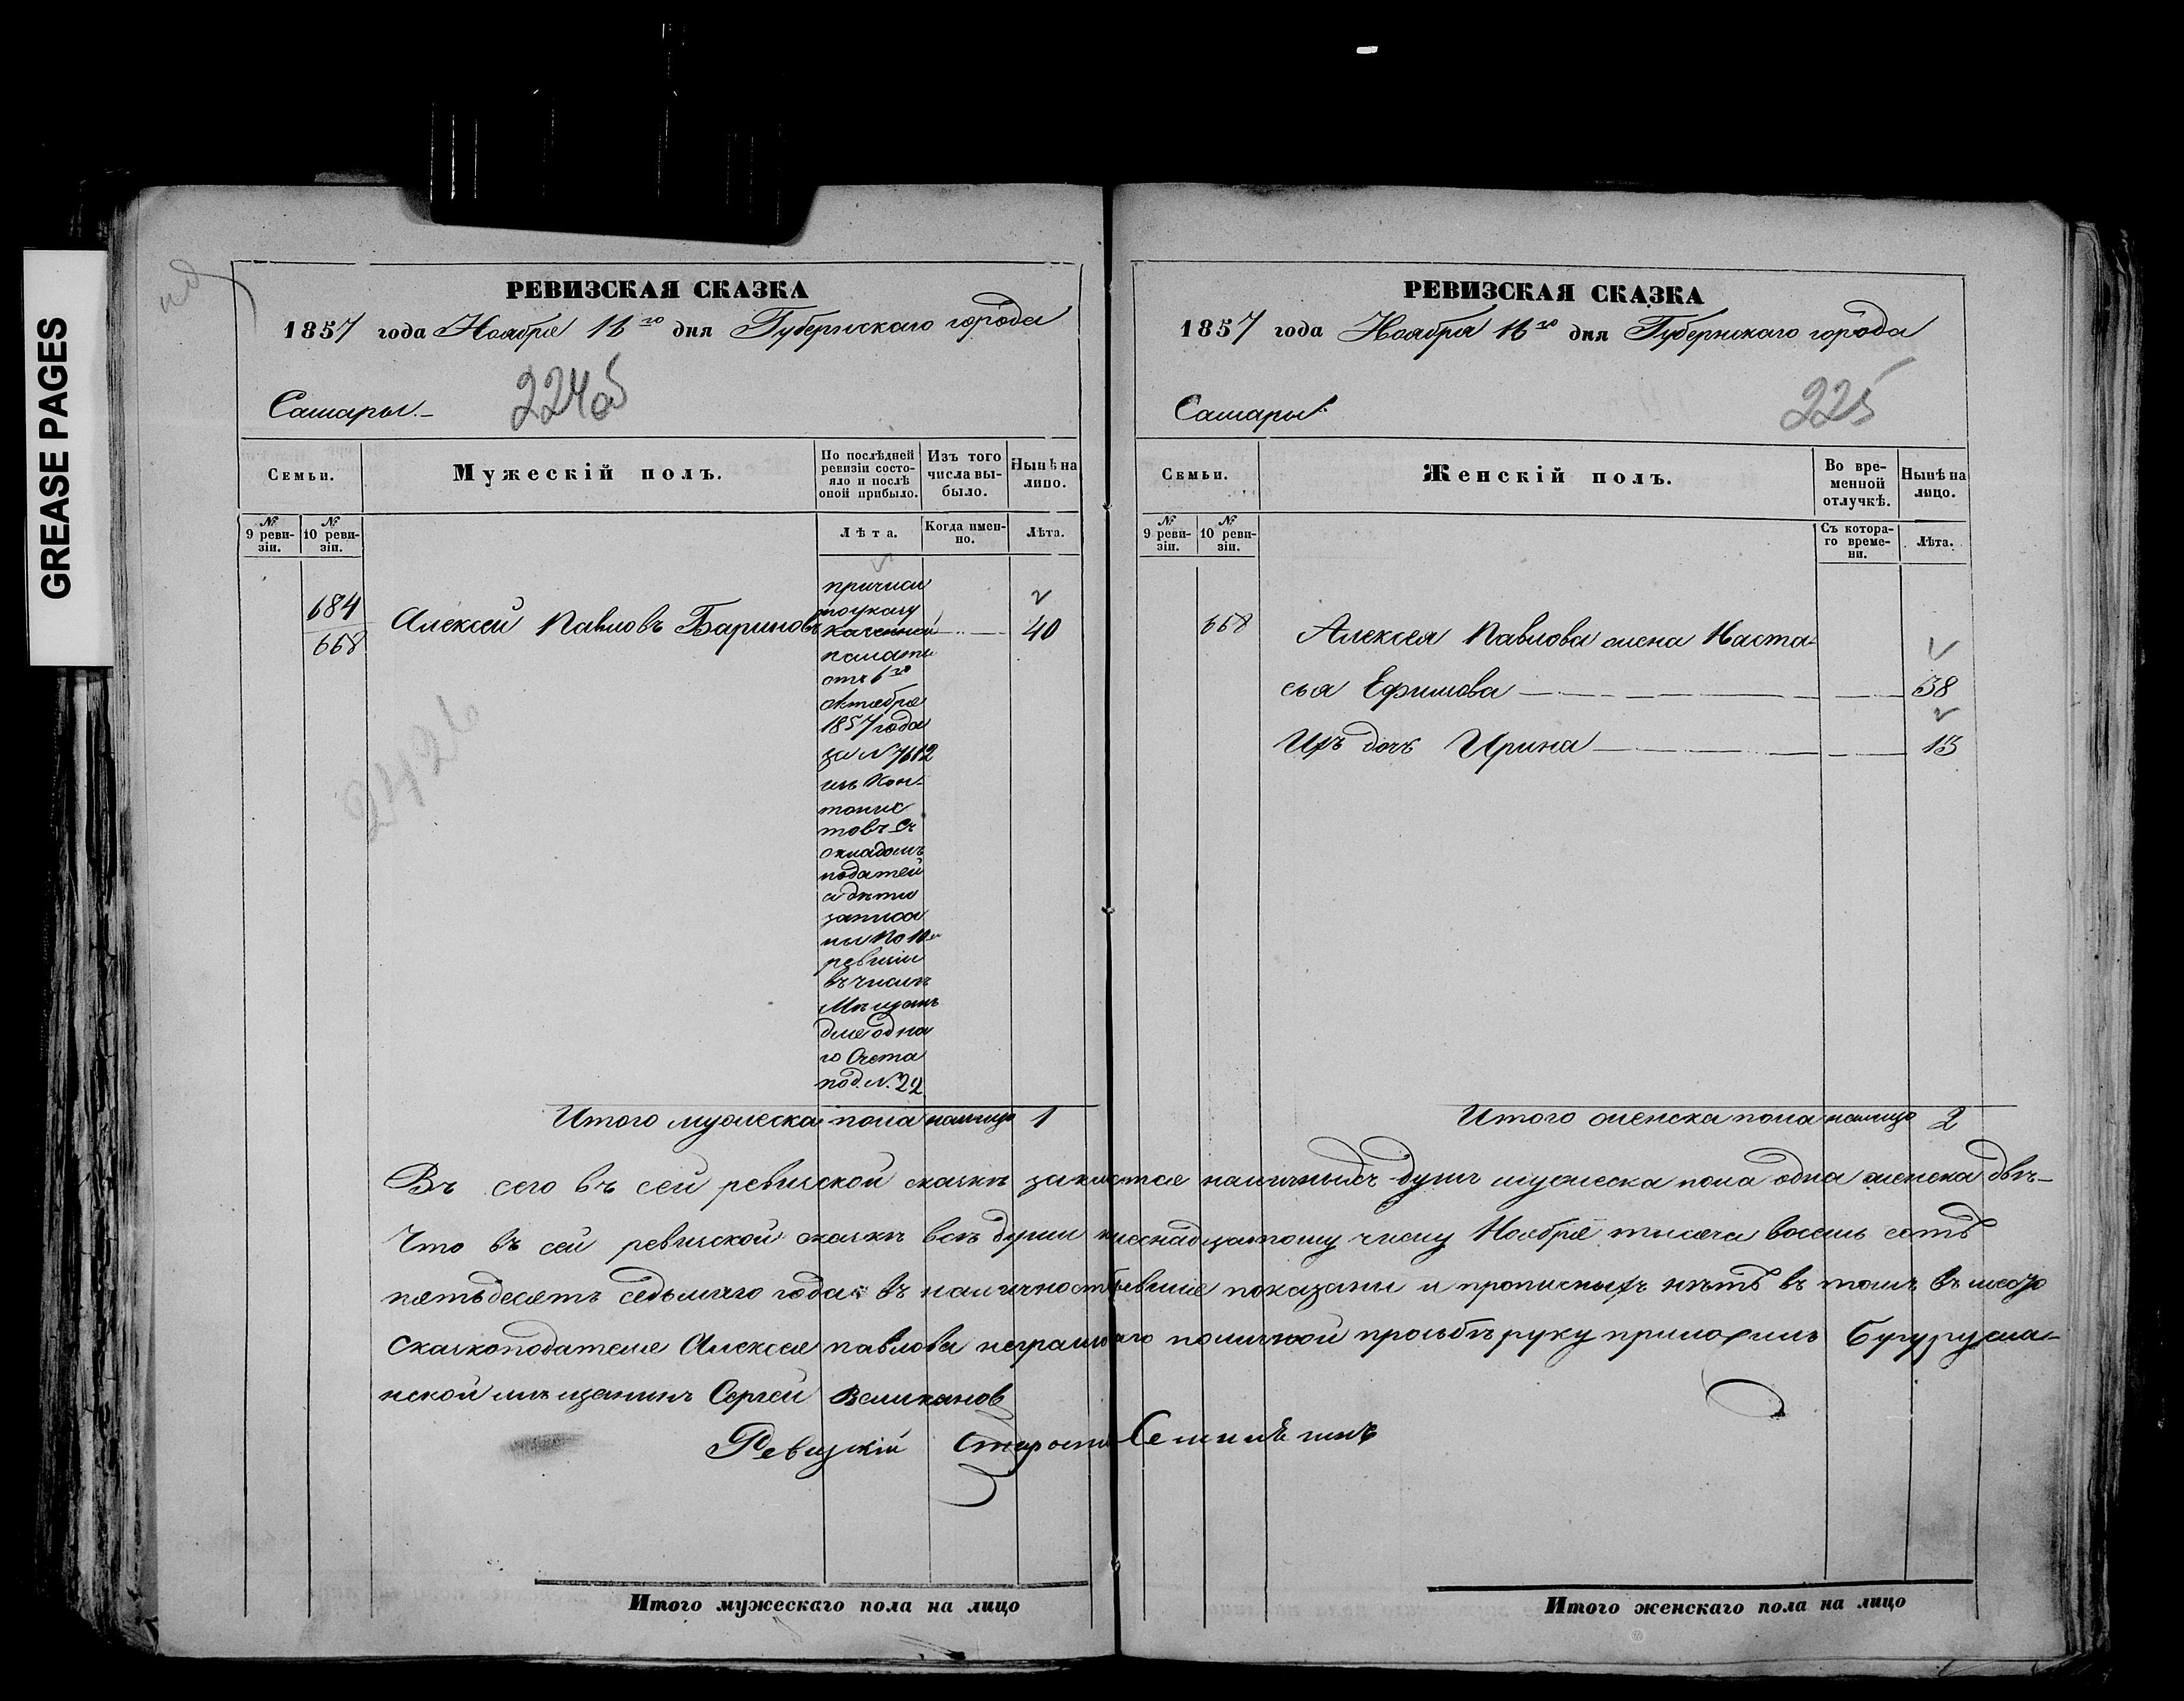 GREASE PAGES
РЕВИЗСКАЯ СКАЗКА
1857 года Ноября 16го дня Губернскаго города
Самары
Семьи.
Мужескій полъ.
По послѣдней
ревизіи состо-
яло и послѣ
оной прибыло.
Изъ того
числа вы-
было.
Нынѣ на
лицо.
№
9 реви-
зіи.
№
10 реви-
зіи.
Лѣта.
Когда имен-
но.
Лѣта.
684
668
Алексей Павловъ Бариновъ
40
причисл
поуказу
казенной
палаты
отъ 6го
октября
1857 года
за № 7612
изъ Кан-
тонис
товъ съ
окладомъ
податей
а дети
записа
ны по 10й
ревизіи
въ числѣ
Мѣщанъ
для одна
го Счета
под. №. 22
Итого мужеска пола налицо 1
РЕВИЗСКАЯ СКАЗКА
1857 года Ноября 16го дня Губернскаго города
Самары
225
Семьи.
Женскій полъ.
Во вре-
менной
отлучкѣ.
Нынѣ на
лицо.
№
9 реви-
зіи.
№
10 реви-
зіи.
Съ котора-
го време-
ни.
Лѣта.
668
Алексея Павлова жена Наста-
сья Ефимова 38
Ихъ дочь Ирина 13
Итого женска пола налицо 2
сего въ сей ревизской сказкѣ наличныхъ душъ мужеска пола одна женска двѣ
Что въ сей ревизской сказкѣ всѣ души шеснадцатому числу Ноября тысяча восемь сотъ
пятьдесятъ седьмаго года въ наличности показаны и прописныхъ нѣтъ въ томъ въ место
сказкоподателя Алексея павлова поличной прозьбѣ руку приложилъ Бугурусла-
нской мѣщанинъ Сергей Великанов
Ревизкій Староста
Итого мужескаго пола на лицо
Итого женскаго пола на лицо